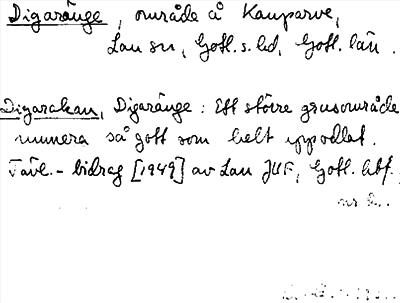 Digaränge, område å Kauparve,
Lau sn, Gotl. s. hd, Gotl. län.
Digarakan, Digaränge: Ett större grusområde
numera så gott som helt uppodlat.
Tävl.-bidrag [1949] av Lau JUF, Gotl. lbf.,
nr